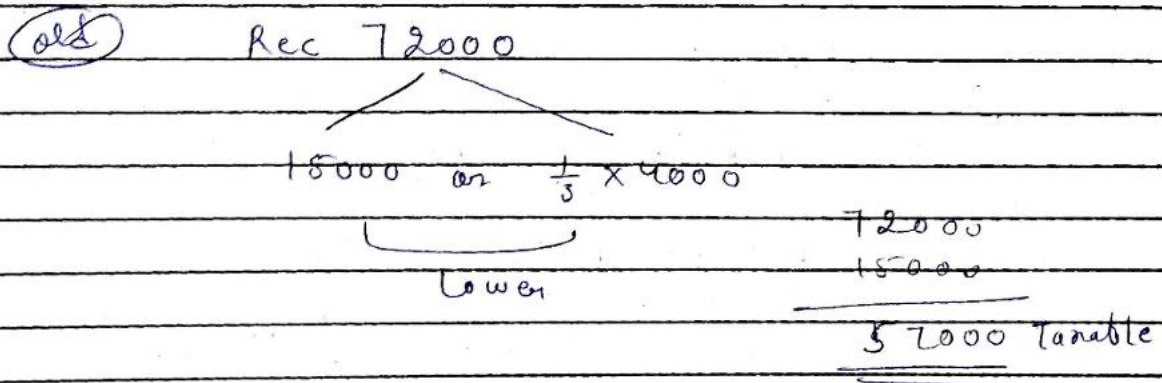 old Rec 72000
15000 or 1/3 × 4000
Lower
72000
15000
57000 Taxable